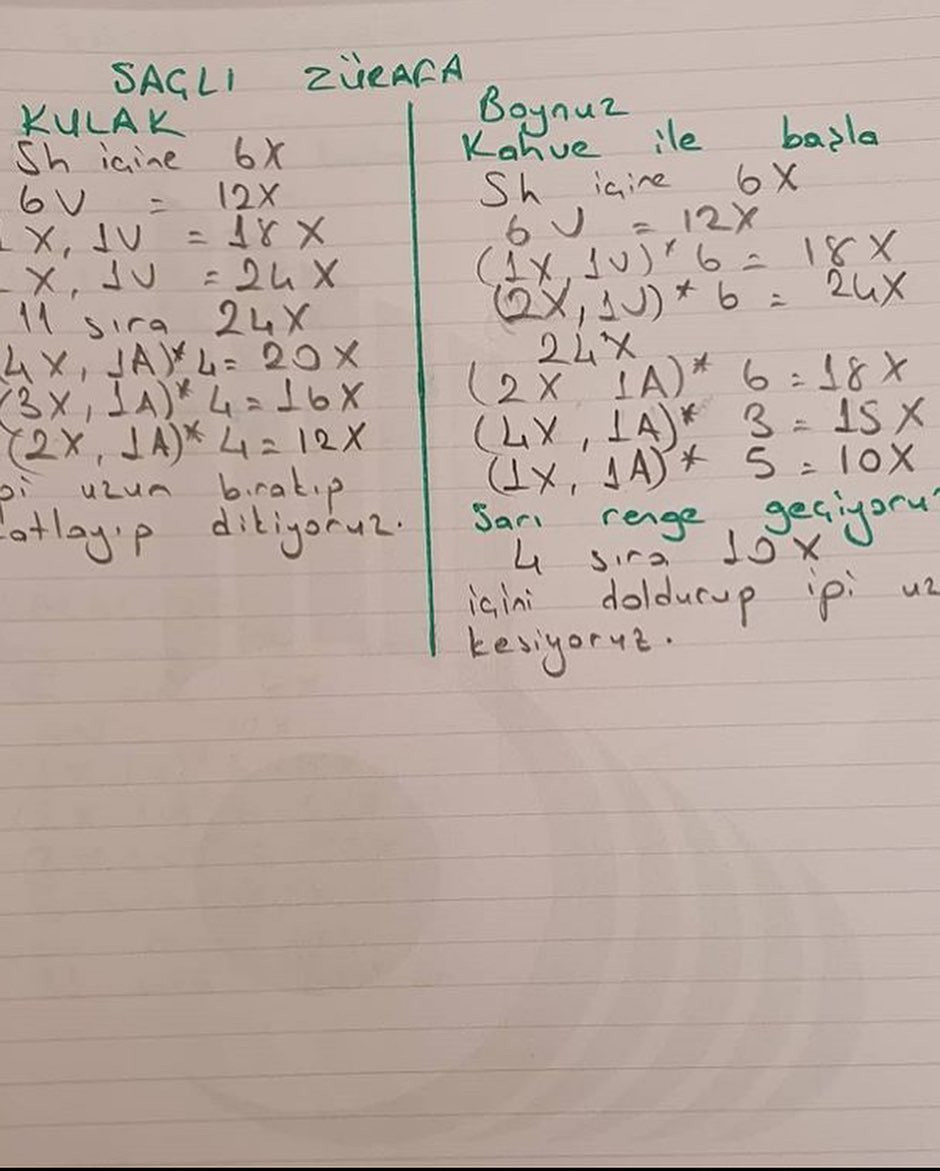 SAÇLI ZÜRAFA
KULAK
Sh içine 6X
6V = 12X
X, 1V = 18X
X, 1V = 24X
11 sıra 24X
4X, 1A)* 4= 20X
(3X, 1A)* 4=16X
(2X, 1A)* 4=12X
uzun bırakıp
dikiyoruz.
Boynuz
Kahve ile başla
Sh içine 6X
6V = 12X
(1X, 1V)* 6 = 18X
(2X, 1V)* 6 = 24X
24X
(2X 1A)* 6 = 18X
(4X, 1A)* 3 = 15X
(1X, 1A)* 5 = 10X
Sarı renge geçiyoru
4 sıra 10X
içini doldurup ipi uz
kesiyoruz.